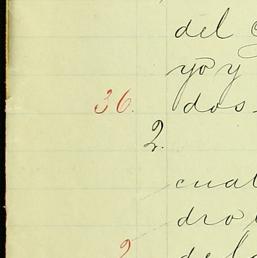 del
yo y
36. dos
2.
cual
dro
2 de la